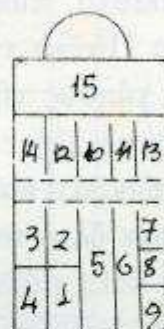 15
14 12 10 11 13
3 2 7
5 6 8
4 1 9